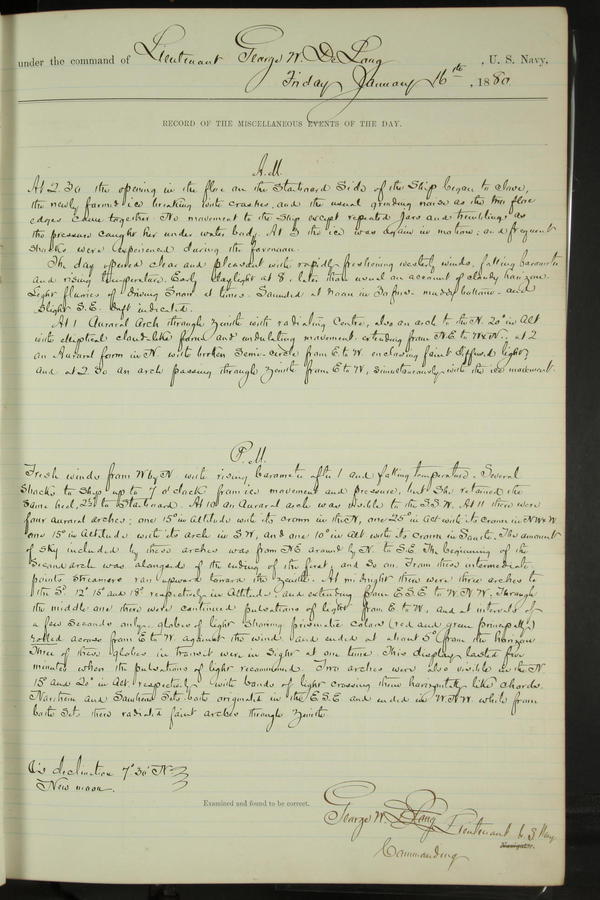 under the command of Lieutenant George W. De Long, U. S. Navy,
Friday January 16th, 1880.
RECORD OF THE MISCELLANEOUS EVENTS OF THE DAY.
A.M.
At 2.30 the opening in the floe on the Starboard Side of the Ship began to close,
the newly formed ice breaking with crashes, and the usual grinding noise as the two floe
edges came together. No movement to the Ship except repeated jars and tremblings as
the pressure caught her under water body. At 5 the ice was again in motion; and frequent
shocks were experienced during the forenoon.
The day opened clear and pleasant with rapidly freshening westerly winds, falling barometer
and rising temperature. Early daylight at 8, later than usual on account of cloudy horizon.
Light flurries of driving Snow at times. Sounded at noon in 30 fms. muddy bottom - and
Slight S.E. drift indicated.
At 1 Auroral Arch through zenith with radiating Centre, also an arch to the N. 20° in Alt
with elliptical cloud-like form and undulating movement extending from N.E. to ; at 2
an Auroral form in N. with broken Semi-circle from E. to W. enclosing faint diffused light;
and at 2.30 an arch passing through zenith from E. to W., simultaneously with the ice movement.
P.M.
Fresh winds from W by N with rising barometer after 1 and falling temperature. Several
shocks to Ship up to 7 o'clock from ice movement and pressure, but She retained the
same heel, 2½° to Starboard. At 10 an Auroral arch was visible to the S.S.W. At 11 there were
four auroral arches; one 15° in altitude with its crown in the N, one 25° in Alt with its crown in N.W.
one 15° in Altitude with its arch in S.W, and one 10° in Alt with its crown in South. The amount
of Sky included by these arches was from N.E around by N. to S.E. The beginning of the
Second arch was alongside of the ending of the first, and so on. From these intermediate
points Streamers ran upward toward the zenith. At midnight there were three arches to
the S. 12° 15° and 18° respectively in Altitude, and extending from E.S.E to W.N.W. Through
the middle one there were continued pulsations of light from E. to W, and at intervals of
a few seconds only globes of light showing prismatic colors (red and green principally)
rolled across from E to W. against the wind and ended at about 5° from the horizon
Three of these globes in transit were in Sight at one time. This display lasted five
minutes when the pulsations of light recommenced. Two arches were also visible in the N.
15° and 20° in Alt respectively with bands of light crossing them horizontally like chords.
Northern and Southern Sets both originated in the E.S.E and ended in W.N.W. while from
both Sets there radiated faint arches through zenith.
declination 7° 30' N
New moon.
Examined and found to be correct.
George W. De Long Lieutenant U. S. Navy
Navigator.
Commanding